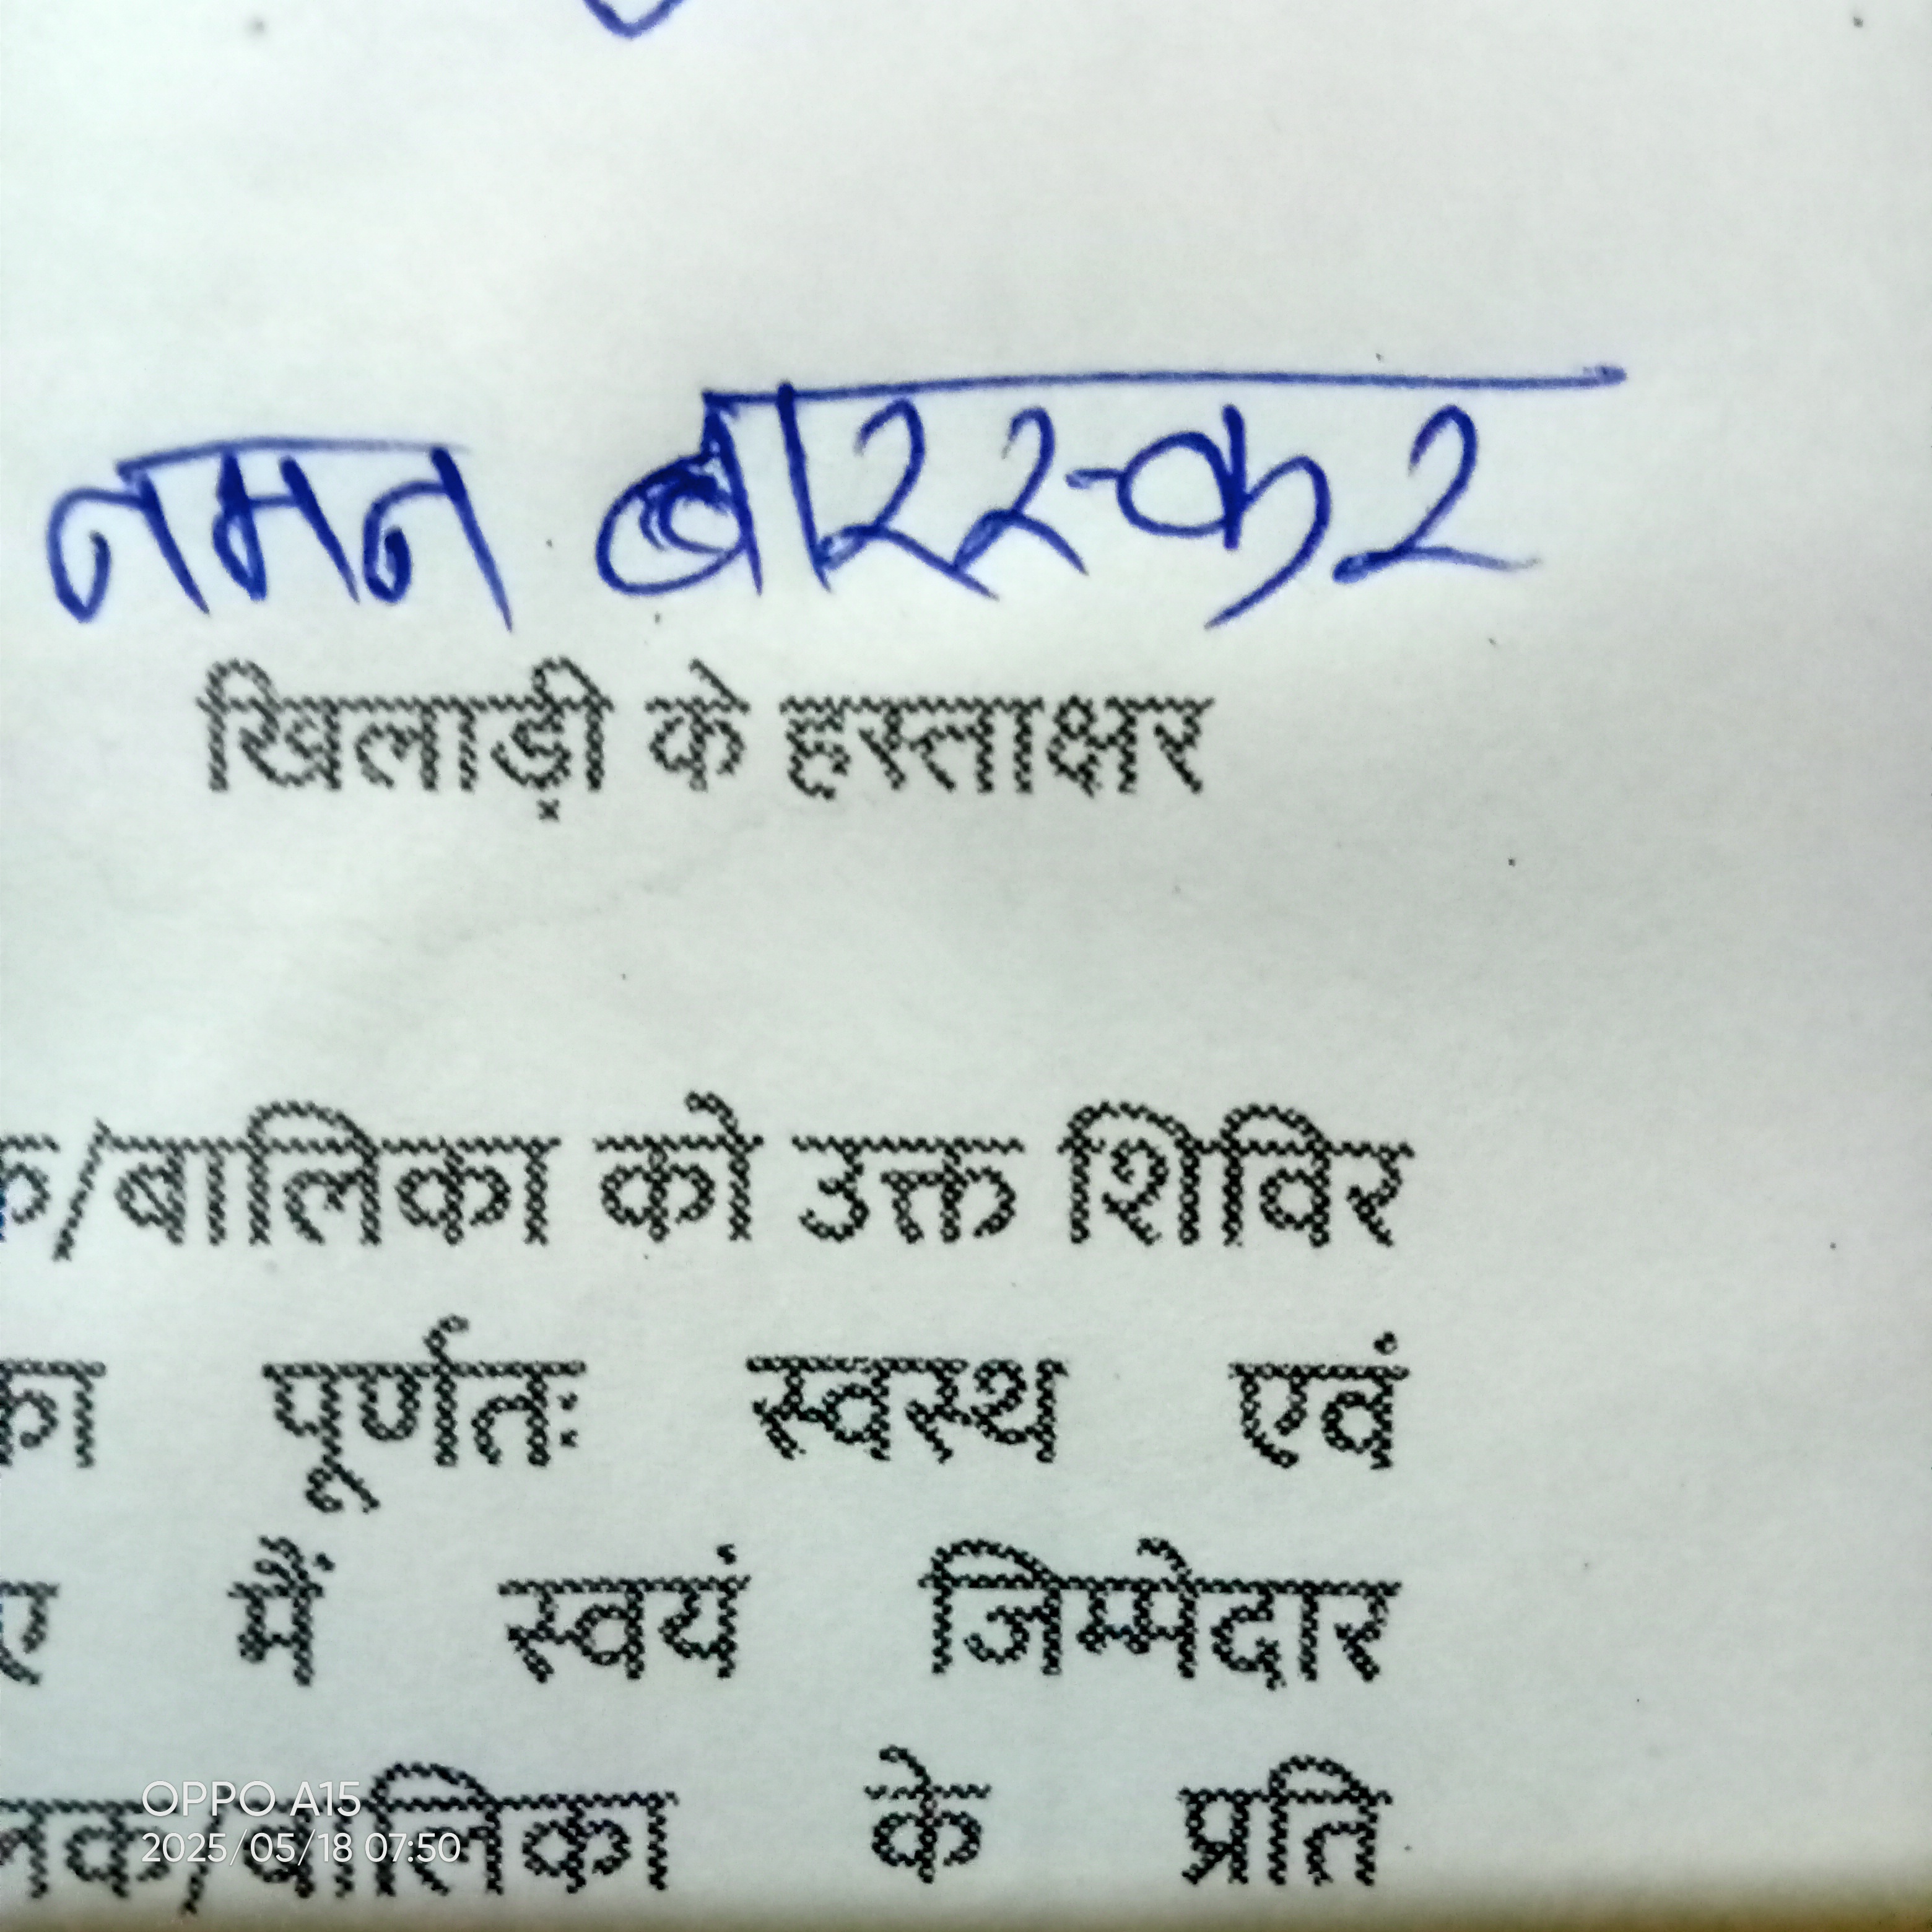 नमन बारस्कर
खिलाड़ी के हस्ताक्षर
क/बालिका को उक्त शिविर
का पूर्णतः स्वस्थ एवं
ए मैं स्वयं जिम्मेदार
लक/बालिका के प्रति
OPPO A15
2025/05/18 07:50